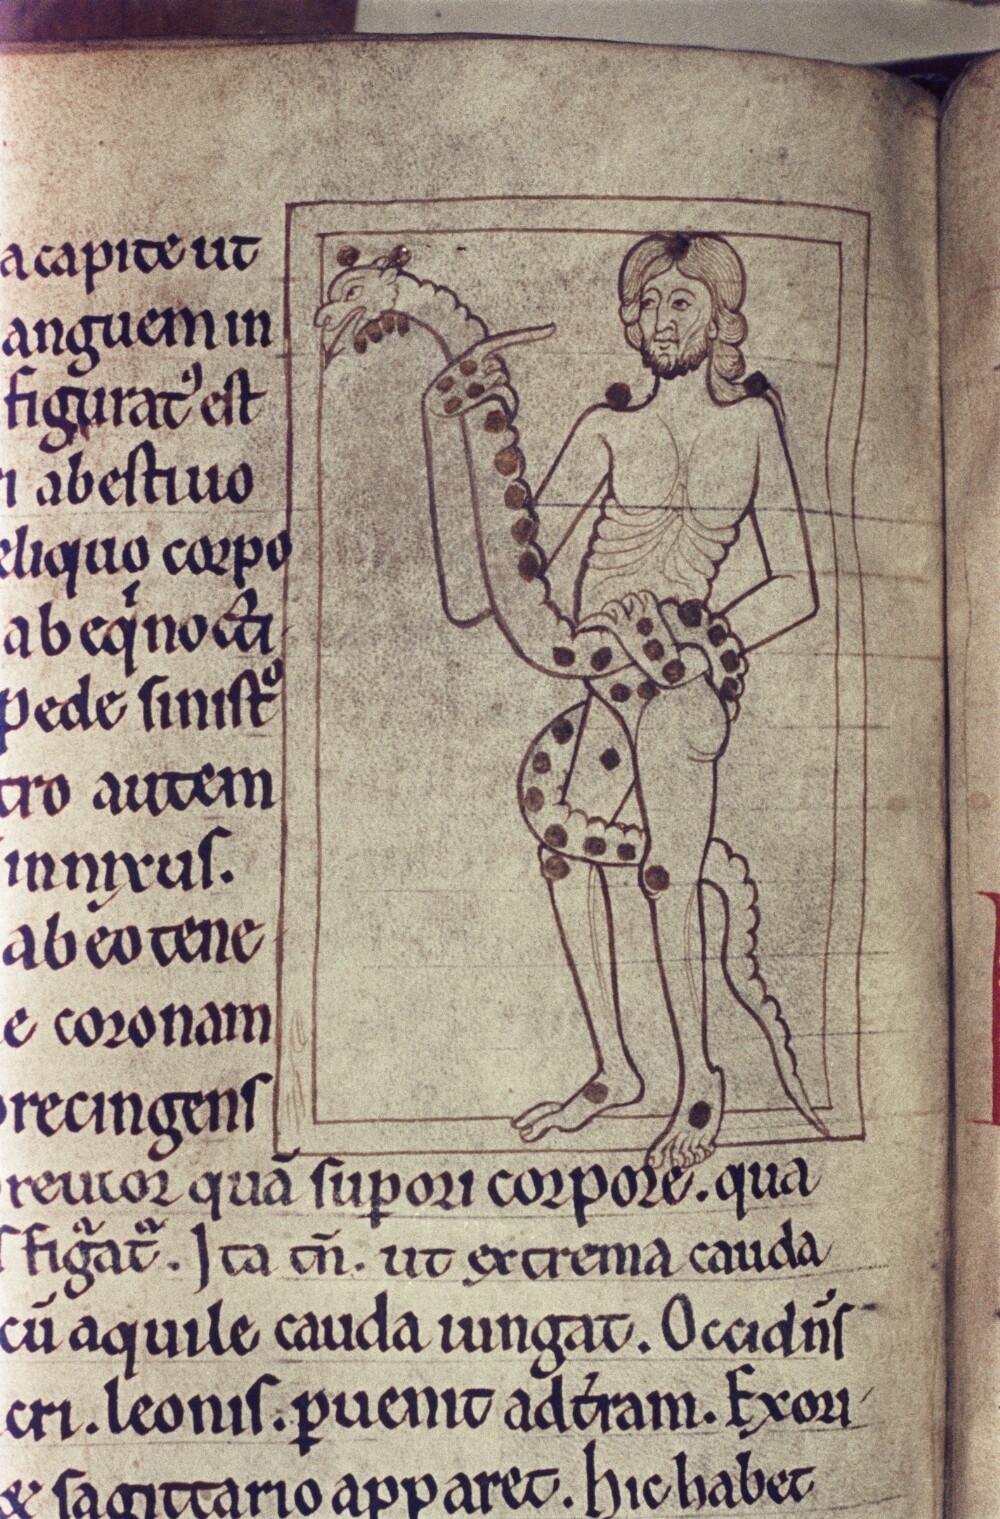 a capite ut
anguem in
figurat᷒ est
abestiuo
eliquo corpo
ab eq̍nocti
pede sinist͛
tro autem
innixus.
ab eo tene
e coronam
precingens
quā superi corpore. qua
figᷓatᷓ. Ita tn̄. ut extrema cauda
cū aquile cauda iungat. Occidn̄s
cri. leonis. puenit ad tr̄am. Exori
& sagittario apparet. hic habet